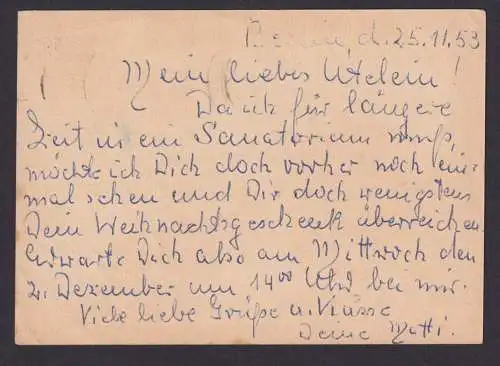 d. 25.11.53
Mein liebes Utelein!
Da ich für längere
Zeit in ein Sanatorium muß,
möchte ich Dich doch vorher noch ein-
mal sehen und Dir doch wenigstens
Dein Weihnachtsgeschenk überreichen.
Erwarte Dich also am Mittwoch den
2. Dezember um 14⁰⁰ Uhr bei mir.
Viele liebe Grüße u. Küsse
Deine Mutti.